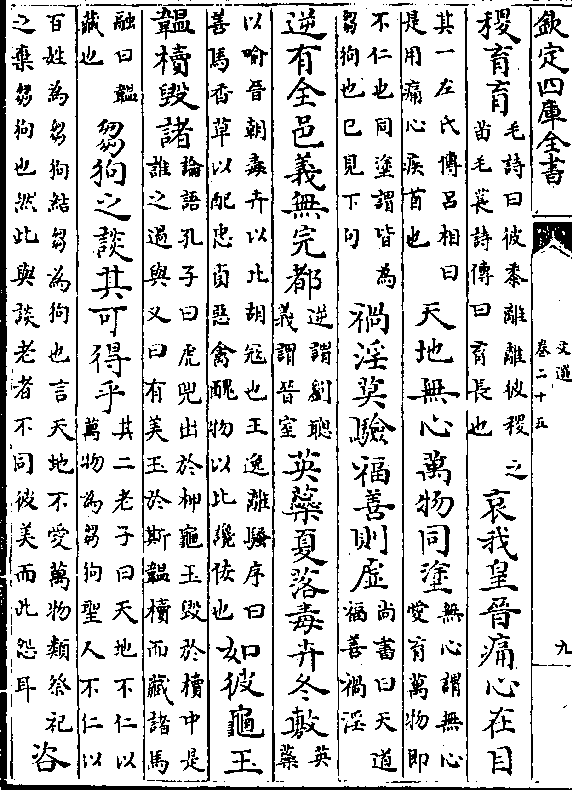 欽定四庫全書
文選
卷二十五
九
稷育育毛詩曰彼黍離離彼稷之
苗毛萇詩傳曰育長也哀我皇晉痛心在目
其一左氏傳吕相曰
是用痛心疾首也天地無心萬物同塗無心謂無心
愛育萬物即
不仁也同塗謂皆為
芻狗也已見下句禍淫莫驗福善則虛尚書曰天道
福善禍淫
逆有全邑義無完都逆謂劉聰
義謂晉室英蘂夏落毒卉冬敷英
蘂
以喻晉朝毒卉以比胡冦也王逸離騷序曰
善鳥香草以配忠貞惡禽醜物以比讒佞也如彼龜玉
韞櫝毁諸論語孔子曰虎兕出於柙龜玉毁於櫝中是
誰之過與又曰有美玉於斯韞櫝而藏諸馬
融曰韞
藏也芻狗之談其可得乎其二老子曰天地不仁以
萬物為芻狗聖人不仁以
百姓為芻狗結芻為狗也言天地不愛萬物類祭祀
之棄芻狗也然此與談老者不同彼美而此怨耳咨